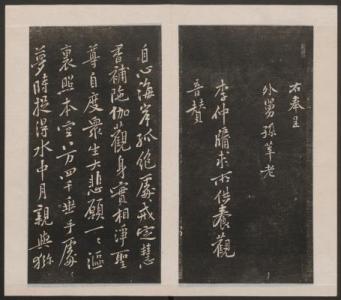 右奉呈
外舅孫莘老
李仲牖求所供養觀
音贊
自心海岸孤絕處戒定慧
香補陁伽觀身實相淨聖
尊自度衆生大悲願一一漚
裏照本空八万四千垂手處
夢時捉得水中月親與猕